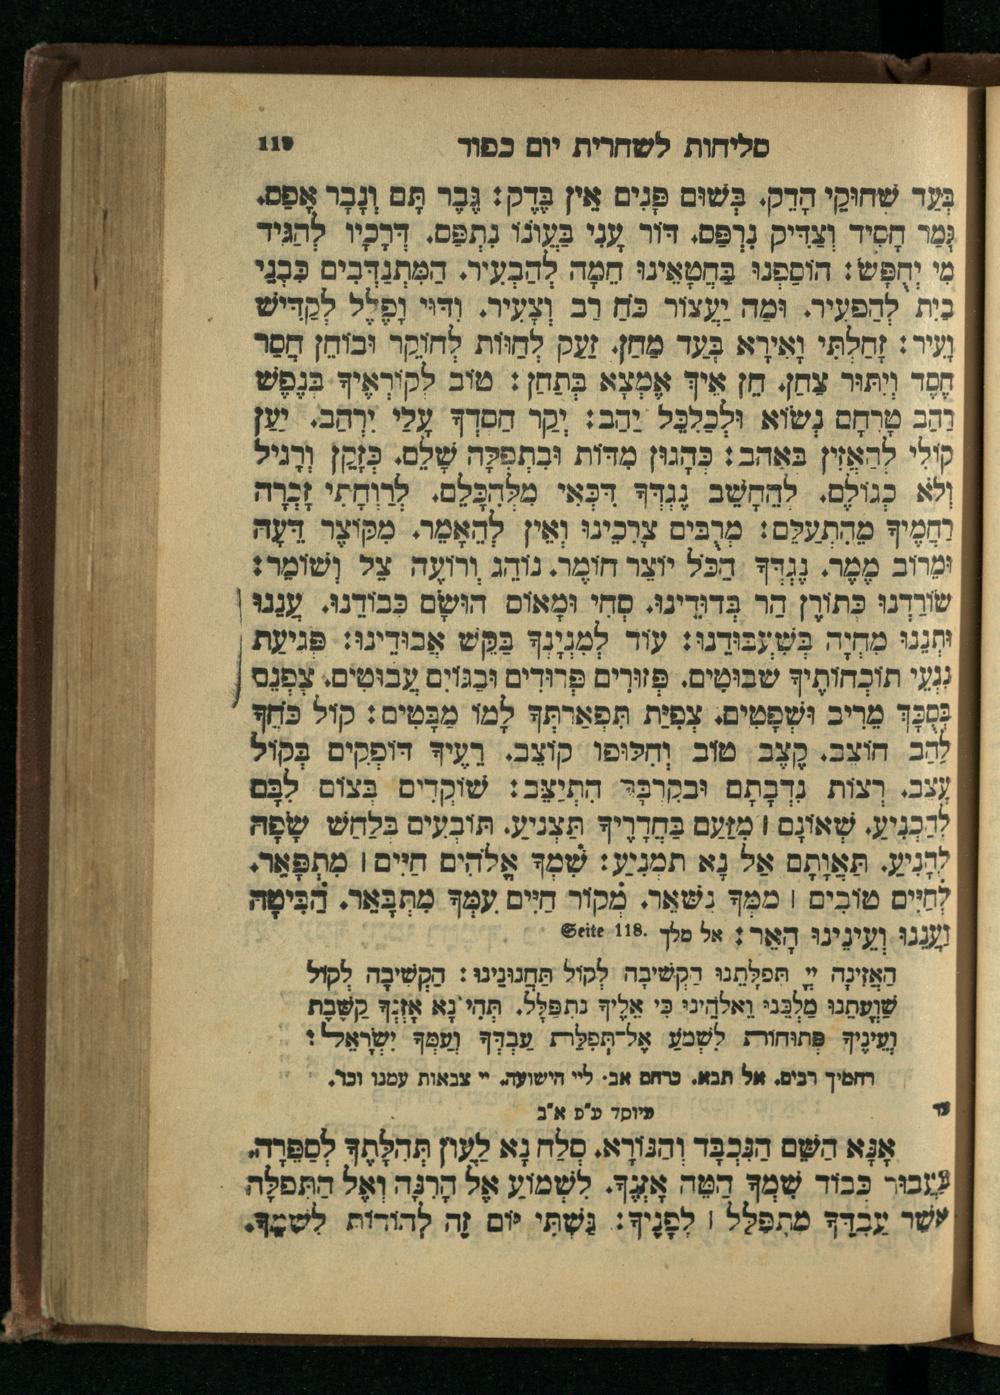 סליחות לשחרית יום כפור 119
בְּעַד שִׁחוּקֵי הָדֵק. בְּשׂוּם פָּנִים אֵין בֶּדֶק: גֶּבֶר תָּם וְנָבָר אָפֵס.
גָּמַר חָסִיד וְצַדִּיק נִרְפַּס. דּוֹר עָנִי בַּעֲוֹנוֹ נִתְפַּס. דְּרָכָיו לְהַגִּיד
מִי יְחֻפָּשׂ: הוֹסַפְנוּ בַּחֲטָאֵינוּ חֵמָה לְהַבְעִיר. הַמִּתְנַדְּבִים כִּבְנֵי
בַיִת לְהַפְעִיר. וּמַה יַּעֲצוֹר כֹּחַ רַב וְצָעִיר. וִדּוּי וָפֶלֶל לְקַדִּישׁ
וָעִיר: זָחַלְתִּי וָאִירָא בְּעַד מַחַן. זַעַק לְחַוּוֹת לְחוֹקֵר וּבוֹחֵן חֲסַר
חֶסֶד וְיִתּוּר צַחַן. חֵן אֵיךְ אֶמְצָא בְּתַחַן: טוֹב לְקוֹרְאֶיךָ בְּנֶפֶשׁ
רַהַב טָרְחָם נְשׂוֹא וּלְכַלְכֵּל יַהַב: יְקַר חַסְדְּךָ עָלַי יִרְהַב. יַעַן
קוֹלִי לְהַאֲזִין בְּאַהַב: כְּהָגוּן מִדּוֹת וּבִתְפִלָּה שָׁלֵם. כְּזָקֵן וְרָגִיל
וְלֹא כְגוֹלֶם. לְהֵחָשֵׁב נֶגְדְּךָ דִּכְאִי מִלְּהִכָּלֵם. לְרַוְחָתִי זָכְרָה
רַחֲמֶיךָ מֵהִתְעַלֵּם: מְרֻבִּים צְרָכֵינוּ וְאֵין לְהֵאָמֵר. מִקּוֹצֶר דֵּעָה
וּמֵרוֹב מֶמֶר. נֶגְדְּךָ הַכֹּל יוֹצֵר חוֹמֶר. נוֹהֵג וְרוֹעֶה צֵל וְשׁוֹמֵר:
שׂוֹרַדְנוּ כְּתוֹרֶן הַר בְּדוּדֵינוּ. סְחִי וּמָאוֹס הוּשַׂם כְּבוֹדֵנוּ. עֲנֵנוּ
וּתְנֵנוּ מִחְיָה בְּשִׁעְבּוּדֵנוּ: עוֹד לְמִנְיָנְךָ בַּקֵּשׁ אֲבוּדֵינוּ: פְּגִיעַת
נִגְעֵי תוֹכְחוֹתֶיךָ שבוּטִים. פְּזוּרִים פְּרוּדִים וּבַגּוֹיִם עֲבוּטִים. צָפְנֵם
בְּסֻכָּךְ מֵרִיב וּשְׁפָטִים. צְפִיַּת תִּפְאַרְתְּךָ לָמוֹ מַבָּטִים: קוֹל כֹּחֲךָ
לַהַב חוֹצֵב. קֶצֶב טוֹב וְחִלּוּפוֹ קוֹצֵב. רֵעֶיךָ דּוֹפְקִים בְּקוֹל
עָצֵב. רְצוֹת נִדְבָתָם וּבְקִרְבָּךְ הִתְיַצֵּב: שׁוֹקְדִים בְּצוֹם לִבָּם
לְהַכְנִיעַ. שְׁאוֹנָם ׀ מִזַּעַם בַּחֲדָרֶיךָ תַּצְנִיעַ. תּוֹבְעִים בְּלַחַשׁ שָׂפָה
לְהָנִיעַ. תַּאֲוָתָם אַל נָא תִמְנִיעַ: שִׁמְךָ אֱלֹהִים חַיִּים ׀ מִתְפָּאֵר.
לְחַיִּים טוֹבִים ׀ מִמְּךָ נִשָּׁאֵר. מְקוֹר חַיִּים עִמְּךָ מִתְבָּאֵר. הַבִּיטָה
וַעֲנֵנוּ וְעֵינֵינוּ הָאֵר: אל מלך Seite 118.
הַאֲזִינָה יְיָ תְּפִלָּתֵנוּ הַקְשִׁיבָה לְקוֹל תַּחֲנוּנֵינוּ: הַקְשִׁיבָה לְקוֹל
שַׁוְעָתֵנוּ מַלְכֵּנוּ וֵאלֹהֵינוּ כִּי אֵלֶיךָ נִתְפַּלָּל. תְּהִי נָא אָזְנְךָ קַשֶּׁבֶת
וְעֵינֶיךָ פְּתוּחוֹת לִשְׁמֹעַ אֶל־תְּפִלַּת עַבְדְּךָ וְעַמְּךָ יִשְׂרָאֵל:
רחמיך רבים. אל תבא. כרחם אב. ליי הישועה. יי צבאות עמנו וכו'.
מיוסד ע"פ א"ב
אָנָּא הַשֵּׁם הַנִּכְבָּד וְהַנּוֹרָא. סְלַח נָא לַעֲוֹן תְּהִלָּתְךָ לְסַפֵּרָה.
בַּעֲבוּר כְּבוֹד שִׁמְךָ הַטֵּה אָזְנֶךָ. לִשְׁמוֹעַ אֶל הָרִנָּה וְאֶל הַתְּפִלָּה
אֲשֶׁר עַבְדְּךָ מִתְפַּלֵּל ׀ לְפָנֶיךָ: גַּשְׁתִּי יוֹם זֶה לְהוֹדוֹת לִשְׁמֶךָ.